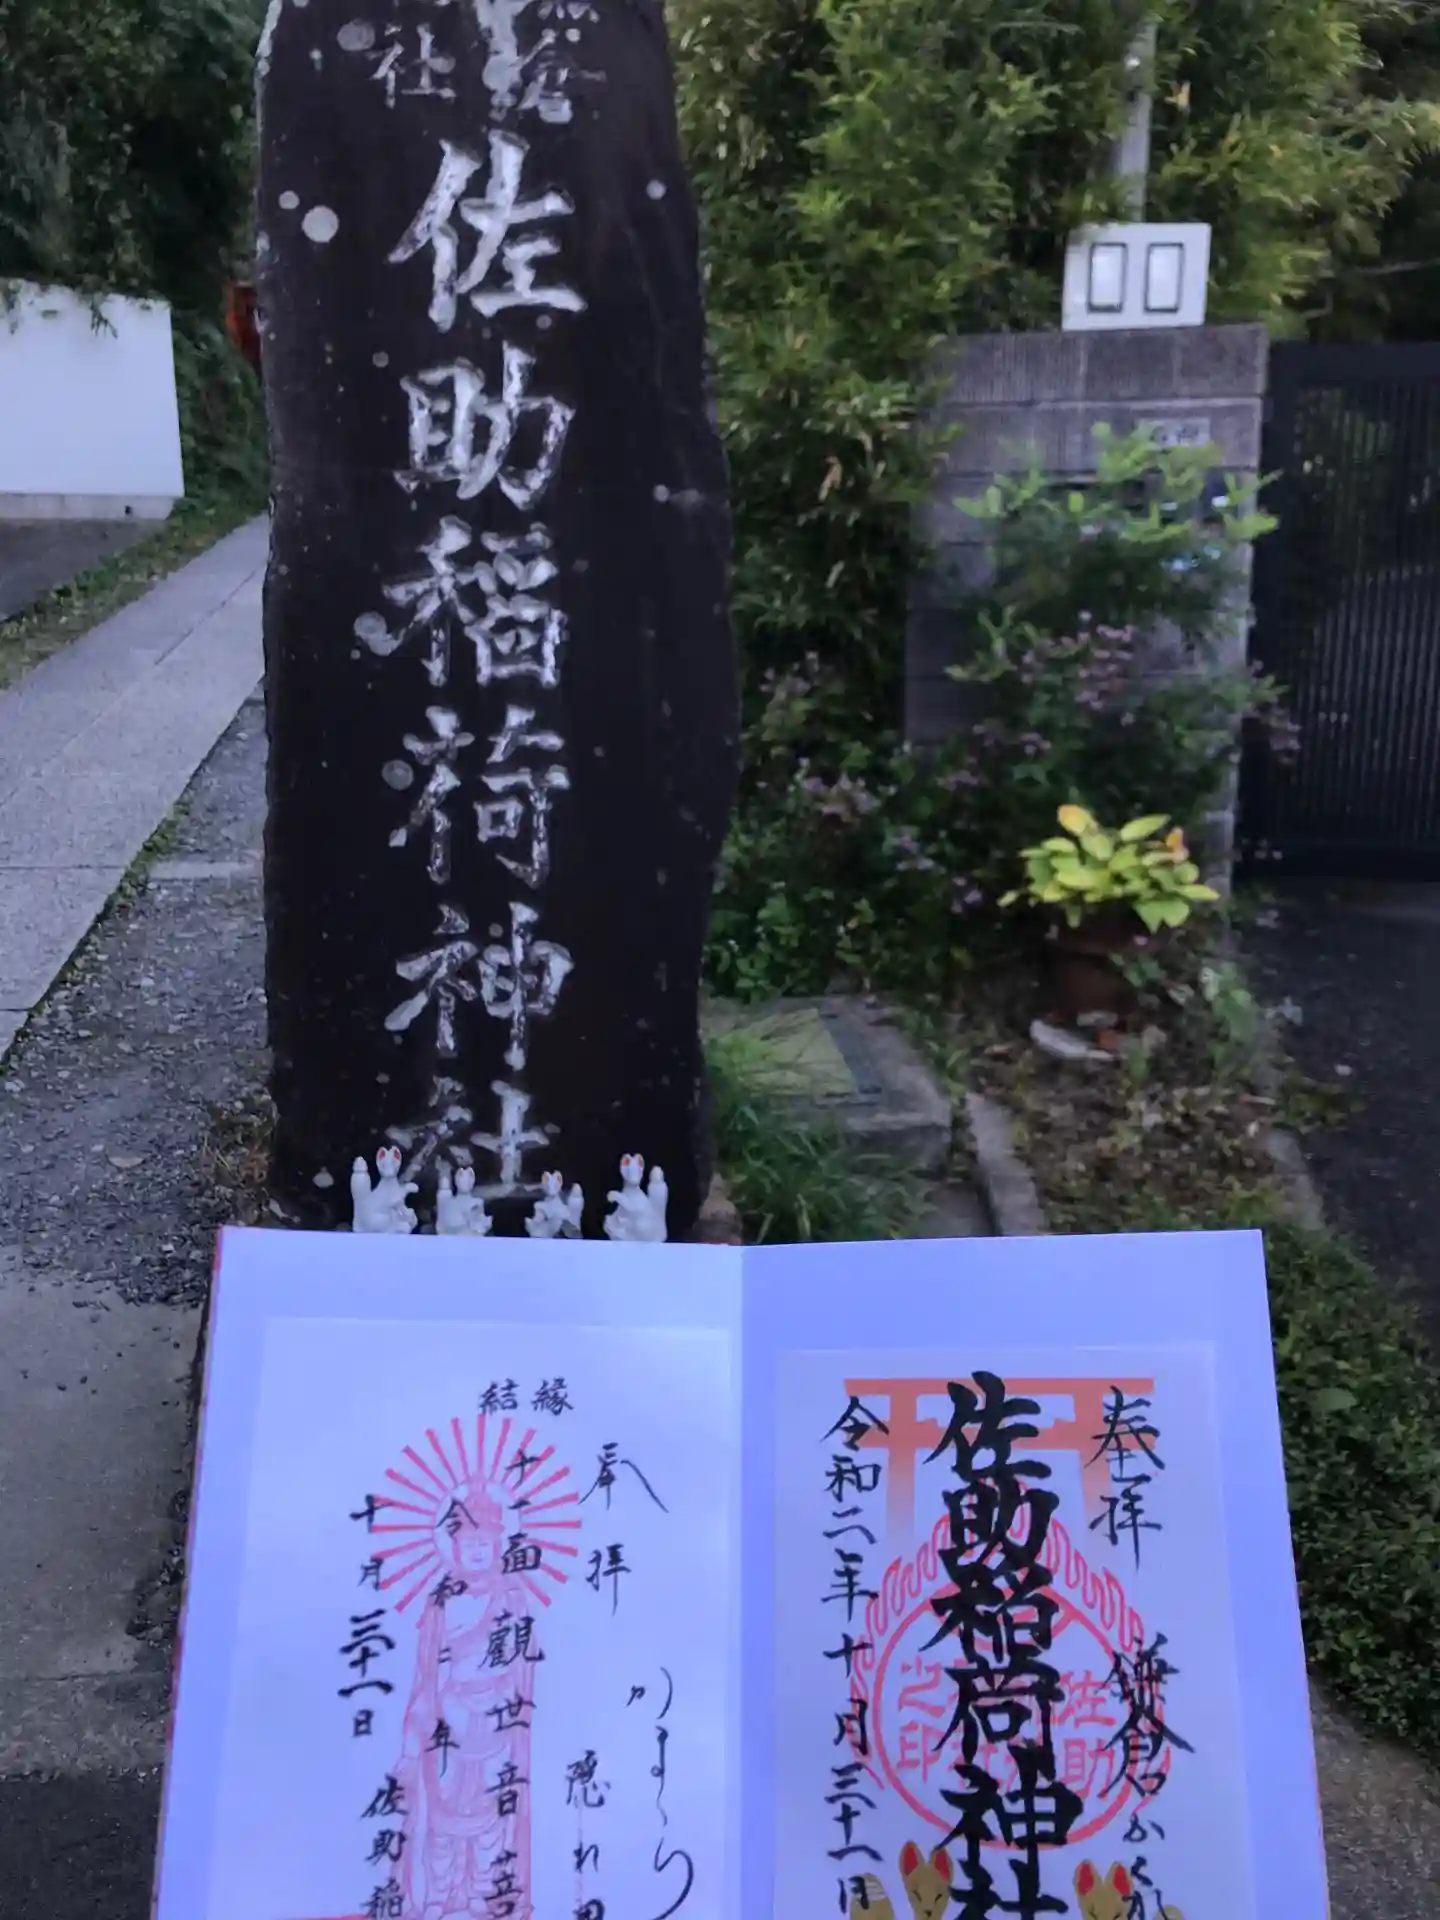 社
佐助稲荷神社
奉拝
鎌倉
かくれ
佐助稲荷神社
令和二年十月三十一日
佐助
之印
結縁
奉拝
かまくら
隠れ里
十一面観世音菩
令和二年
十月三十一日
佐助稲